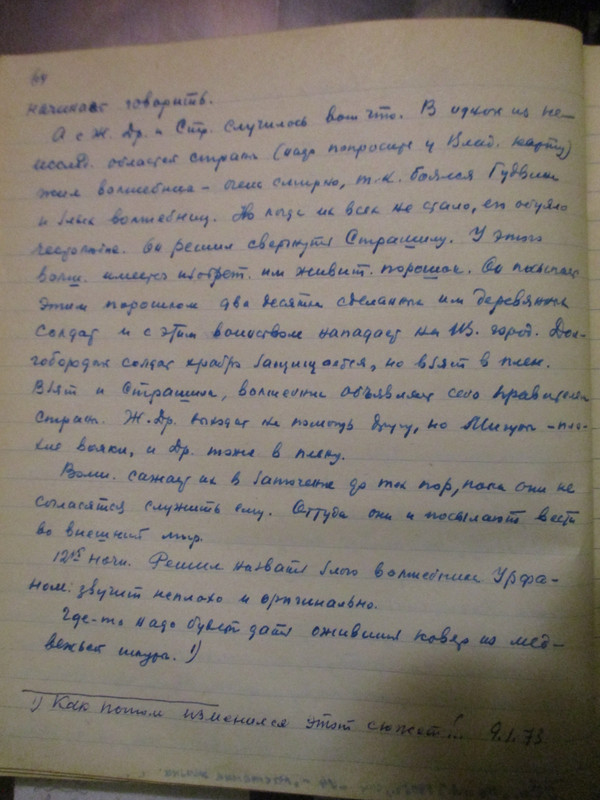 64
начинает говорить.
А с Ж. Др. и Стр. случилось вот что. В одной из не-
исслед. областей страны (надо попросить у Влад. карту)
жил волшебник – очень смирно, т.к. боялся Гудвина
и злых волшебниц. Но когда их всех не стало, его обуяло
честолюбие. Он решил свергнуть Страшилу. У этого
волш. имеется изобрет. им живит. порошок. Он посыпает
этим порошком два десятка сделанных им деревянных
солдат и с этим воинством нападает на Из. город. Дол-
гобородый солдат храбро защищается, но взят в плен.
Взят и Страшила, волшебник объявляет себя правителем
страны. Ж. Др. выходит на помощь другу, но Мигуны – пло-
хие вояки, и Др. тоже в плену.
Волш. сажает их в заточение до тех пор, пока они не
согласятся служить ему. Оттуда они и посылают вести
во внешний мир.
12 ч. ночи. Решил назвать злого волшебника Урфа-
ном: звучит неплохо и оригинально.
Где-то надо будет дать оживший ковер из мед-
вежьей шкуры. 1)
1) Как потом изменился этот сюжет! 9.1.73